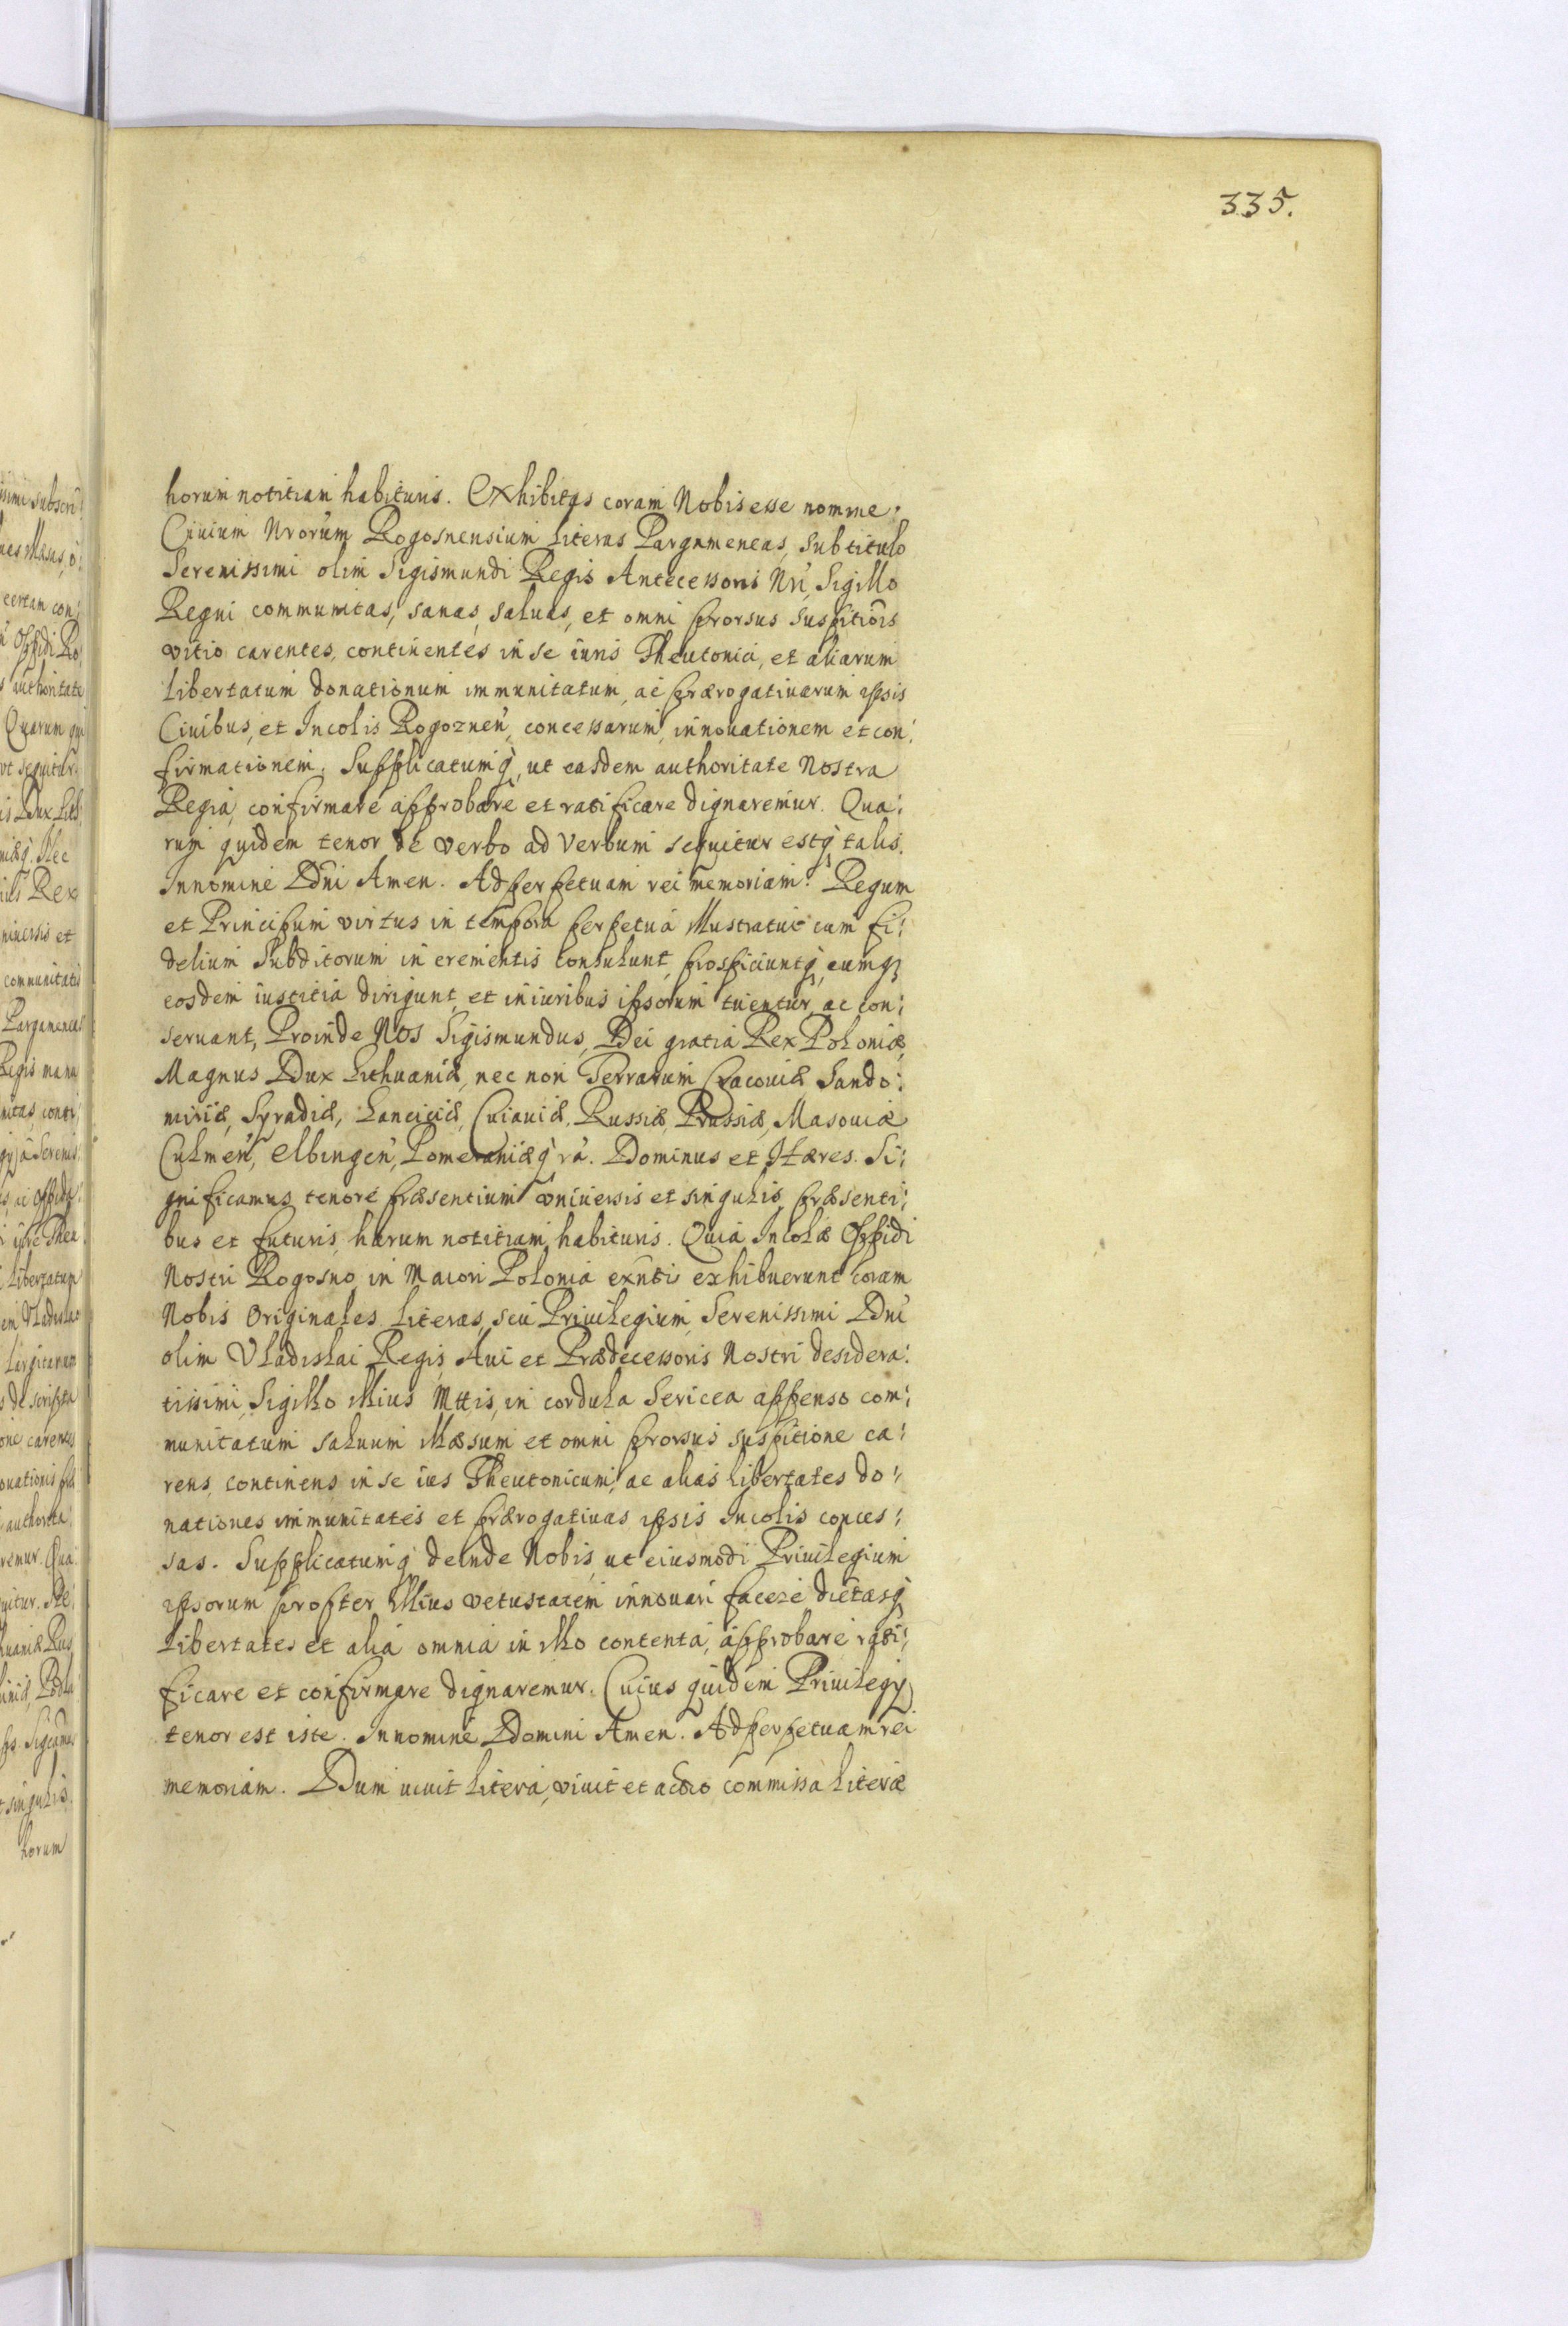 335.
horum notitiam habituris. Exhibitas coram Nobis esse nomine
Ciuium Nrorum Rogosnensium Literas Pargameneas, sub titulo
Serenissimi olim Sigismundi Regis Antecessoris Nri, Sigillo
Regni communitas, sanas, saluas, et omni prorsus suspitiois
vitio carentes, continentes in se iuris Theutonici, et aliarum
Libertatum donationum immunitatum, ac prærogatiuarum ipsis
Ciuibus, et Incolis Rogoznen, concessarum, innouationem et con:
firmationem. Supplicatumq, ut easdem authoritate Nostra
Regia, confirmare approbare et ratificare dignaremur. Qua:
rum quidem tenor de verbo ad verbum sequitur estq talis.
In nomine Dni Amen. Ad perpetuam rei memoriam. Regum
et Principum virtus in tempora perpetua illustratur cum fi:
delium Subditorum in crementis consulunt, prospiciuntq, cumq
eosdem iustitia dirigunt, et in iuribus ipsorum tuentur, ac con:
seruant, Proinde Nos Sigismundus, Dei gratia Rex Poloniæ,
Magnus Dux Lithuaniæ, nec non Terrarum Cracouiæ Sando:
miriæ, Syradiæ, Lanciciæ, Cuiauiæ, Russiæ, Prussiæ, Masouiæ
Culmen, Elbingen, Pomeraniæq ra. Dominus et Hæres. Si:
gnificamus tenore præsentium vniuersis et singulis, præsenti:
bus et futuris, harum notitiam habituris. Quia Incolæ Oppidi
Nostri Rogosno in Maiori Polonia exnti exhibuerunt coram
Nobis Originales Literas, seu Priuilegium, Serenissimi Dni
olim Vladislai Regis, Aui et Prædecessoris Nostri desidera:
tissimi, Sigillo illius Mttis, in cordula Sericea appenso com:
munitatum saluum illæsum et omni prorsus suspitione ca:
rens, continens in se ius Theutonicum, ac alias libertates do:
nationes immunitates et prærogatiuas ipsis Incolis conces:
sas. Supplicatumq deinde Nobis, ut eiusmodi Priuilegium
ipsorum propter illius vetustatem innouari facere dictasq
Libertates et alia omnia in illo contenta, approbare rati:
ficare et confirmare dignaremur. Cuius quidem Priuilegij
tenor est iste. In nomine Domini Amen. Ad perpetuam rei
memoriam. Dum uiuit litera, viuit et actio commissa literæ